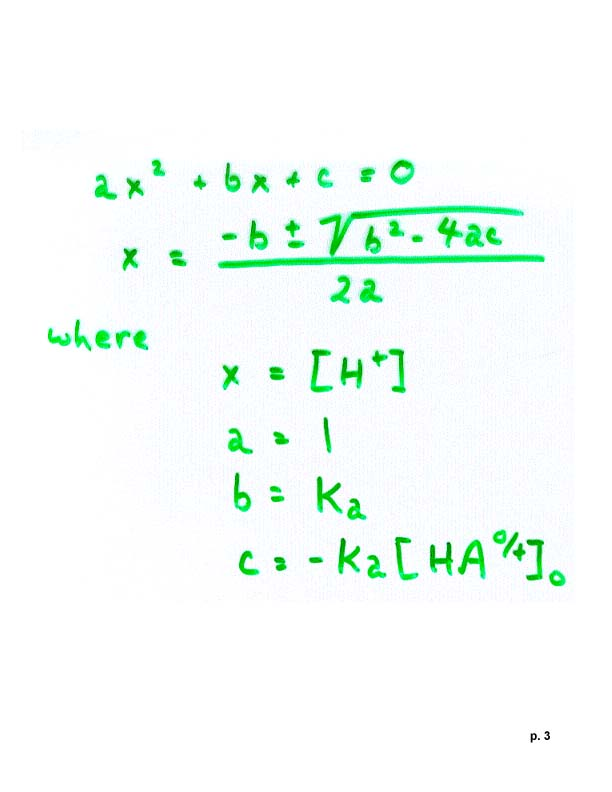 ax² + bx + c = 0
x = (-b ± √(b² - 4ac)) / 2a
where
x = [H⁺]
a = 1
b = Ka
c = -Ka[HA⁰/⁺]₀
p. 3